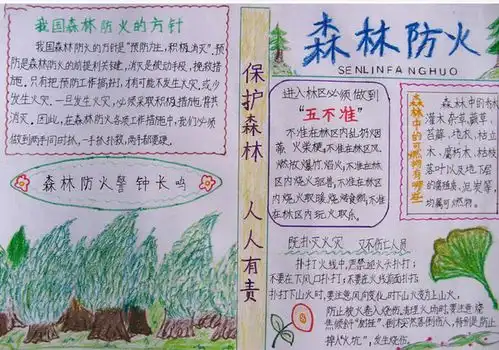 我国森林防火的方针
我国森林防火的方针是"预防为主，积极消灭"。预
防是森林防火的前提和关键，消灭是被动手段、挽救措
施。只有把预防工作搞好，才有可能不发生火灾或少
发生火灾。一旦发生火灾，必须采取积极措施，将其
消灭。因此，在森林防火各项工作措施中，我们必须
做到两手同时抓，一手抓扑救，两手都要硬。
森林防火警钟长鸣
保护森林 人人有责
森林防火
SENLINFANGHUO
进入林区必须做到
"五不准"
不准在林区内乱扔烟
蒂、火柴梗，不准在林区
燃放爆竹、焰火，不准在林
区内烧火驱兽，不准在林区
内烧火取暖、烧烤食物，不
在林区内玩火取乐。
森林中的可燃物有哪些
森林中的林
灌木、杂草、蕨草、
苔藓、地衣、枯立
木、腐朽木、枯枝
落叶以及地下层
的腐殖质、泥炭等
均属可燃物。
既扑灭火灾 又不伤亡人员
扑打火线中，严禁迎火头扑打；
不要在下风口扑打；不要在火线前面扑打；
扑打下山火时，要注意风向变化，时下山火变为上山火，
防止被火卷入烧伤。清理火场时，要注意烧
焦倾斜"树挂"、倒木突然落倒伤人，特别是防止
掉入"火坑"，发生烧伤。